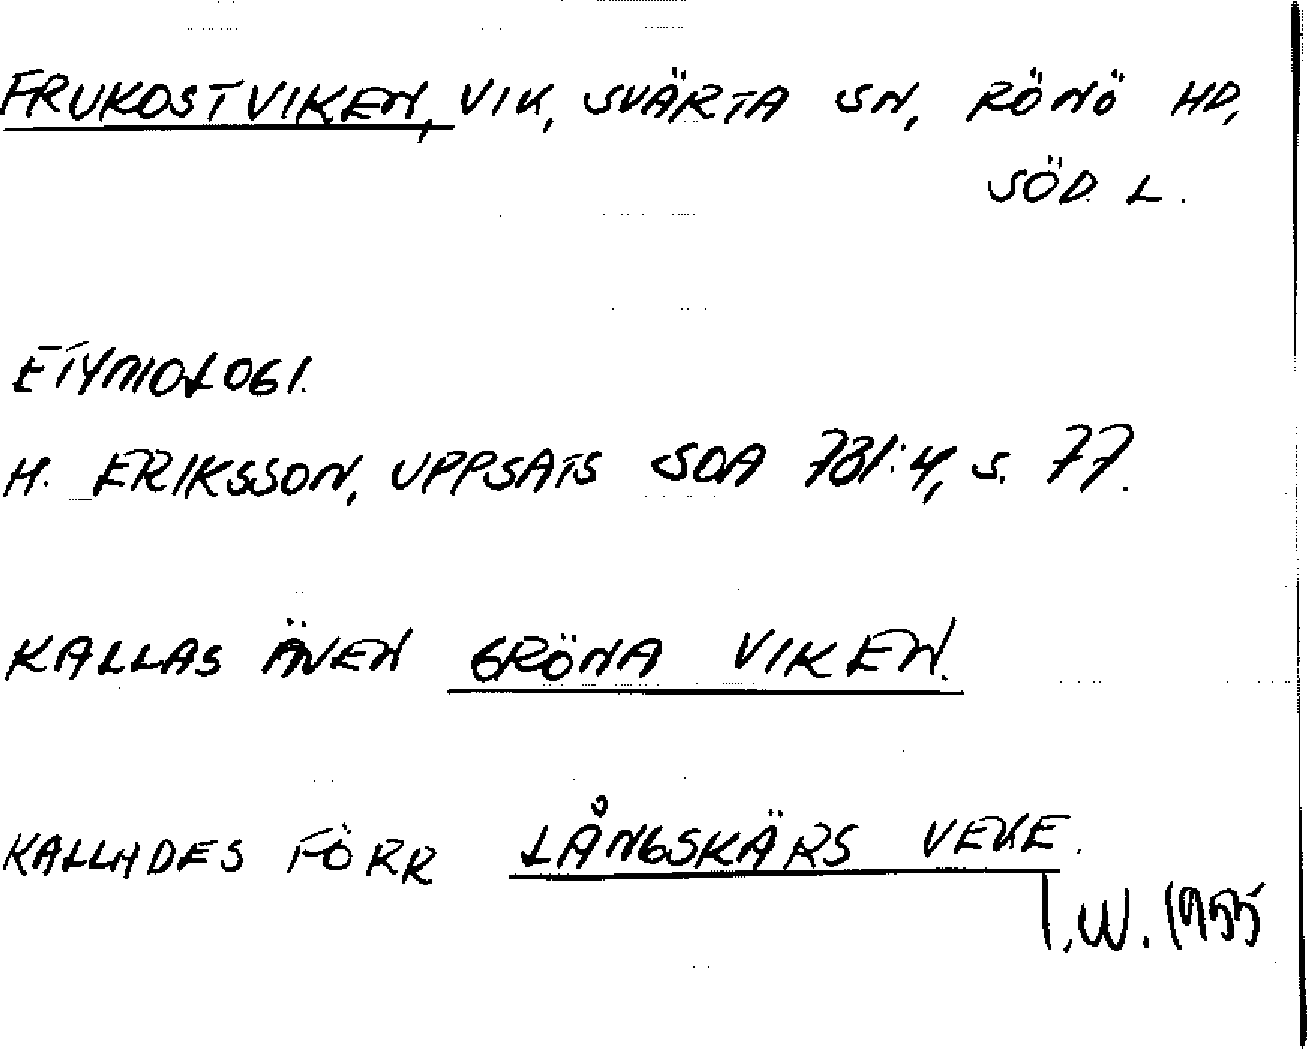 FRUKOSTVIKEN, VIK, SVÄRTA SN, RÖNÖ HD,
SÖD. L.
ETYMOLOGI.
H. ERIKSSON, UPPSATS SOA 781:4, S. 77.
KALLAS ÄVEN GRÖNA VIKEN.
KALLADES FÖRR LÅNGSKÄRS VEKE.
I.W. 1955